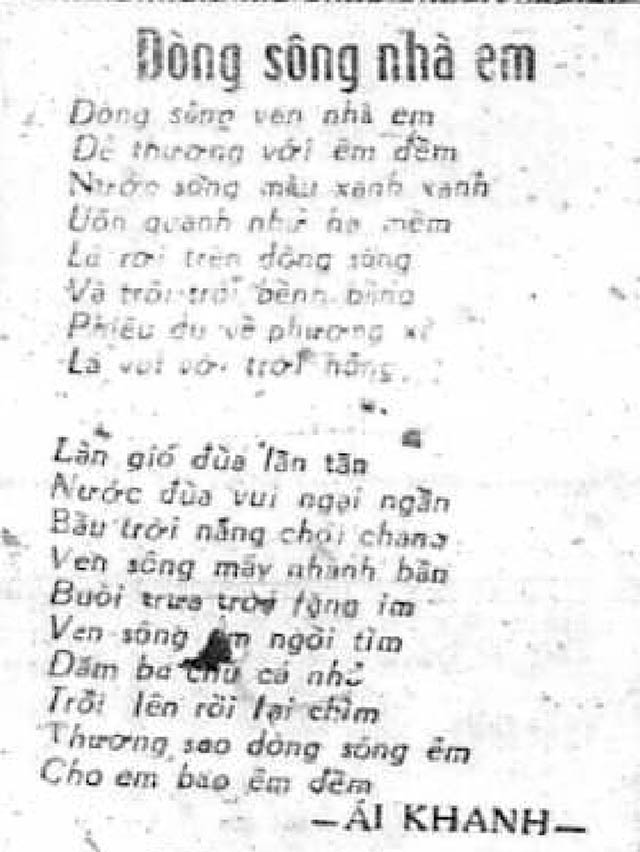 Dòng sông nhà em
Dòng sông ven nhà em
Dễ thương với êm đềm
Nước sông mầu xanh xanh
Uốn quanh như mềm
Lá rơi trên dòng sông
Và trôi trôi bềnh bồng
Phiêu du về phương
Lá vui với trời hồng
Làn gió đùa lăn tăn
Nước đùa vui ngại ngần
Bầu trời nắng chói chang
Ven sông mấy nhánh bần
Buổi trưa trời lặng im
Ven sông em ngồi tìm
Dăm ba chú cá nhỏ
Trồi lên rồi lại chìm
Thương sao dòng sông êm
Cho em bao êm đềm
—ÁI KHANH—